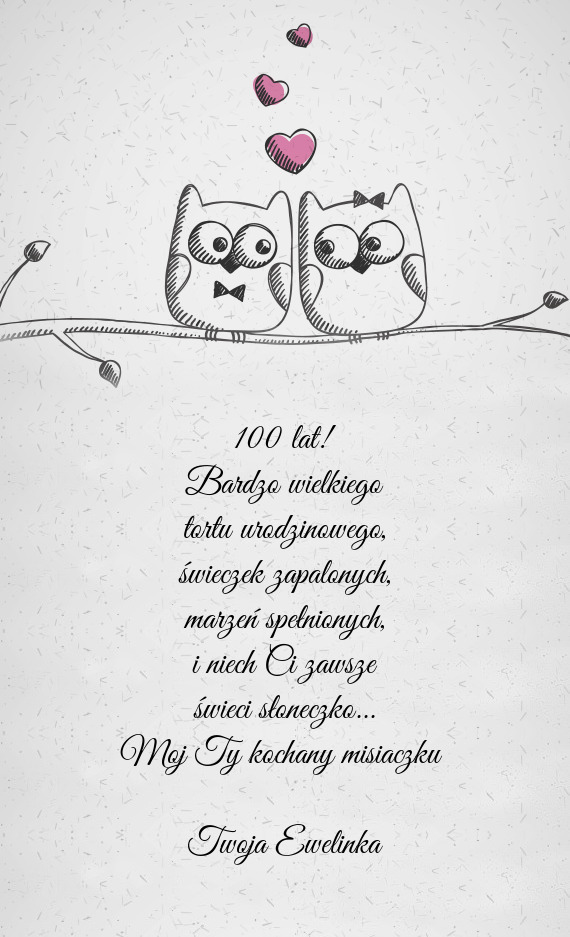 100 lat!
Bardzo wielkiego
tortu urodzinowego,
świeczek zapalonych,
marzeń spełnionych,
i niech Ci zawsze
świeci słoneczko...
Moj Ty kochany misiaczku
Twoja Ewelinka